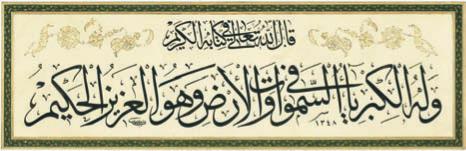 قال الله تعالى في كتابه الكريم
وله الكبرياء في السموات والأرض وهو العزيز الحكيم
١٣٤٨